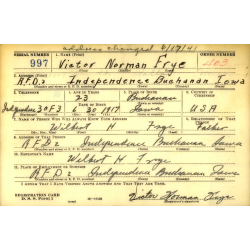 address changed 6/17/41
SERIAL NUMBER 1. NAME (Print) ORDER NUMBER
997 Victor Norman Frye 403
2. ADDRESS (Print)
R.F.D.2 Independence Buchanan Iowa
3. TELEPHONE 4. AGE IN YEARS 5. PLACE OF BIRTH 6. COUNTRY OF CITIZENSHIP
23 Buchanan
DATE OF BIRTH
Independence 3 of 3 30 1917 Iowa USA
7. NAME OF PERSON WHO WILL ALWAYS KNOW YOUR ADDRESS 8. RELATIONSHIP OF THAT PERSON
Wilbert H Frye Father
9. ADDRESS OF THAT PERSON
R.F.D.2 Independence Buchanan Iowa
10. EMPLOYER'S NAME
Wilbert H Frye
11. PLACE OF EMPLOYMENT OR BUSINESS
R.F.D.2 Independence Buchanan Iowa
I AFFIRM THAT I HAVE VERIFIED ABOVE ANSWERS AND THAT THEY ARE TRUE.
REGISTRATION CARD
D.S.S. Form 1
Victor Norman Frye